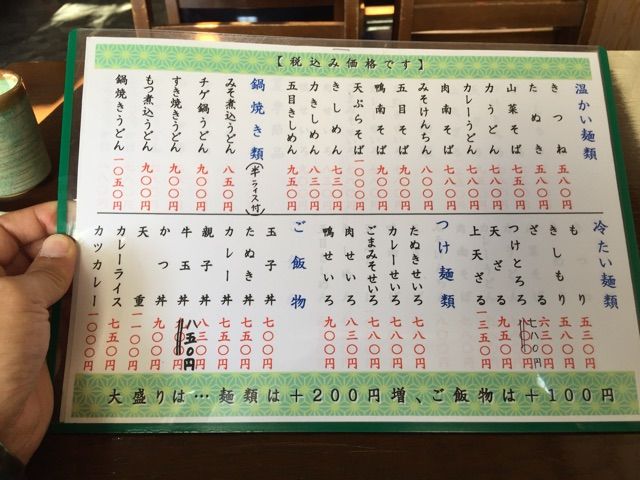 【税込み価格です】
温かい麺類
きつね 五八〇円
たぬき 五八〇円
山菜そば
力うどん
カレーうどん
肉南そば
みそけんちん
五目そば
鴨南そば
天ぷらそば 一〇〇〇円
きしめん 七三〇円
力きしめん 八三〇円
五目きしめん 九五〇円
鍋焼き類(半ライス付)
みそ煮込うどん 八五〇円
チゲ鍋うどん 九〇〇円
すき焼きうどん 九〇〇円
もつ煮込うどん 九〇〇円
鍋焼きうどん 一〇五〇円
冷たい麺類
もり 五三〇円
きしもり 五八〇円
ざる 六三〇円
つけとろろ 七八〇円
天ざる
上天ざる 一三五〇円
つけ麺類
たぬきせいろ 七八〇円
カレーせいろ 八八〇円
ごまみそせいろ 八三〇円
肉せいろ 八三〇円
鴨せいろ 九〇〇円
ご飯物
玉子丼 七〇〇円
たぬき丼 七五〇円
カレー丼 七五〇円
親子丼 八三〇円
牛玉丼 八五〇円
かつ丼 九〇〇円
天重 一一〇〇円
カレーライス 七五〇円
カツカレー 一〇〇〇円
大盛りは…麺類は+200円増、ご飯物は+100円